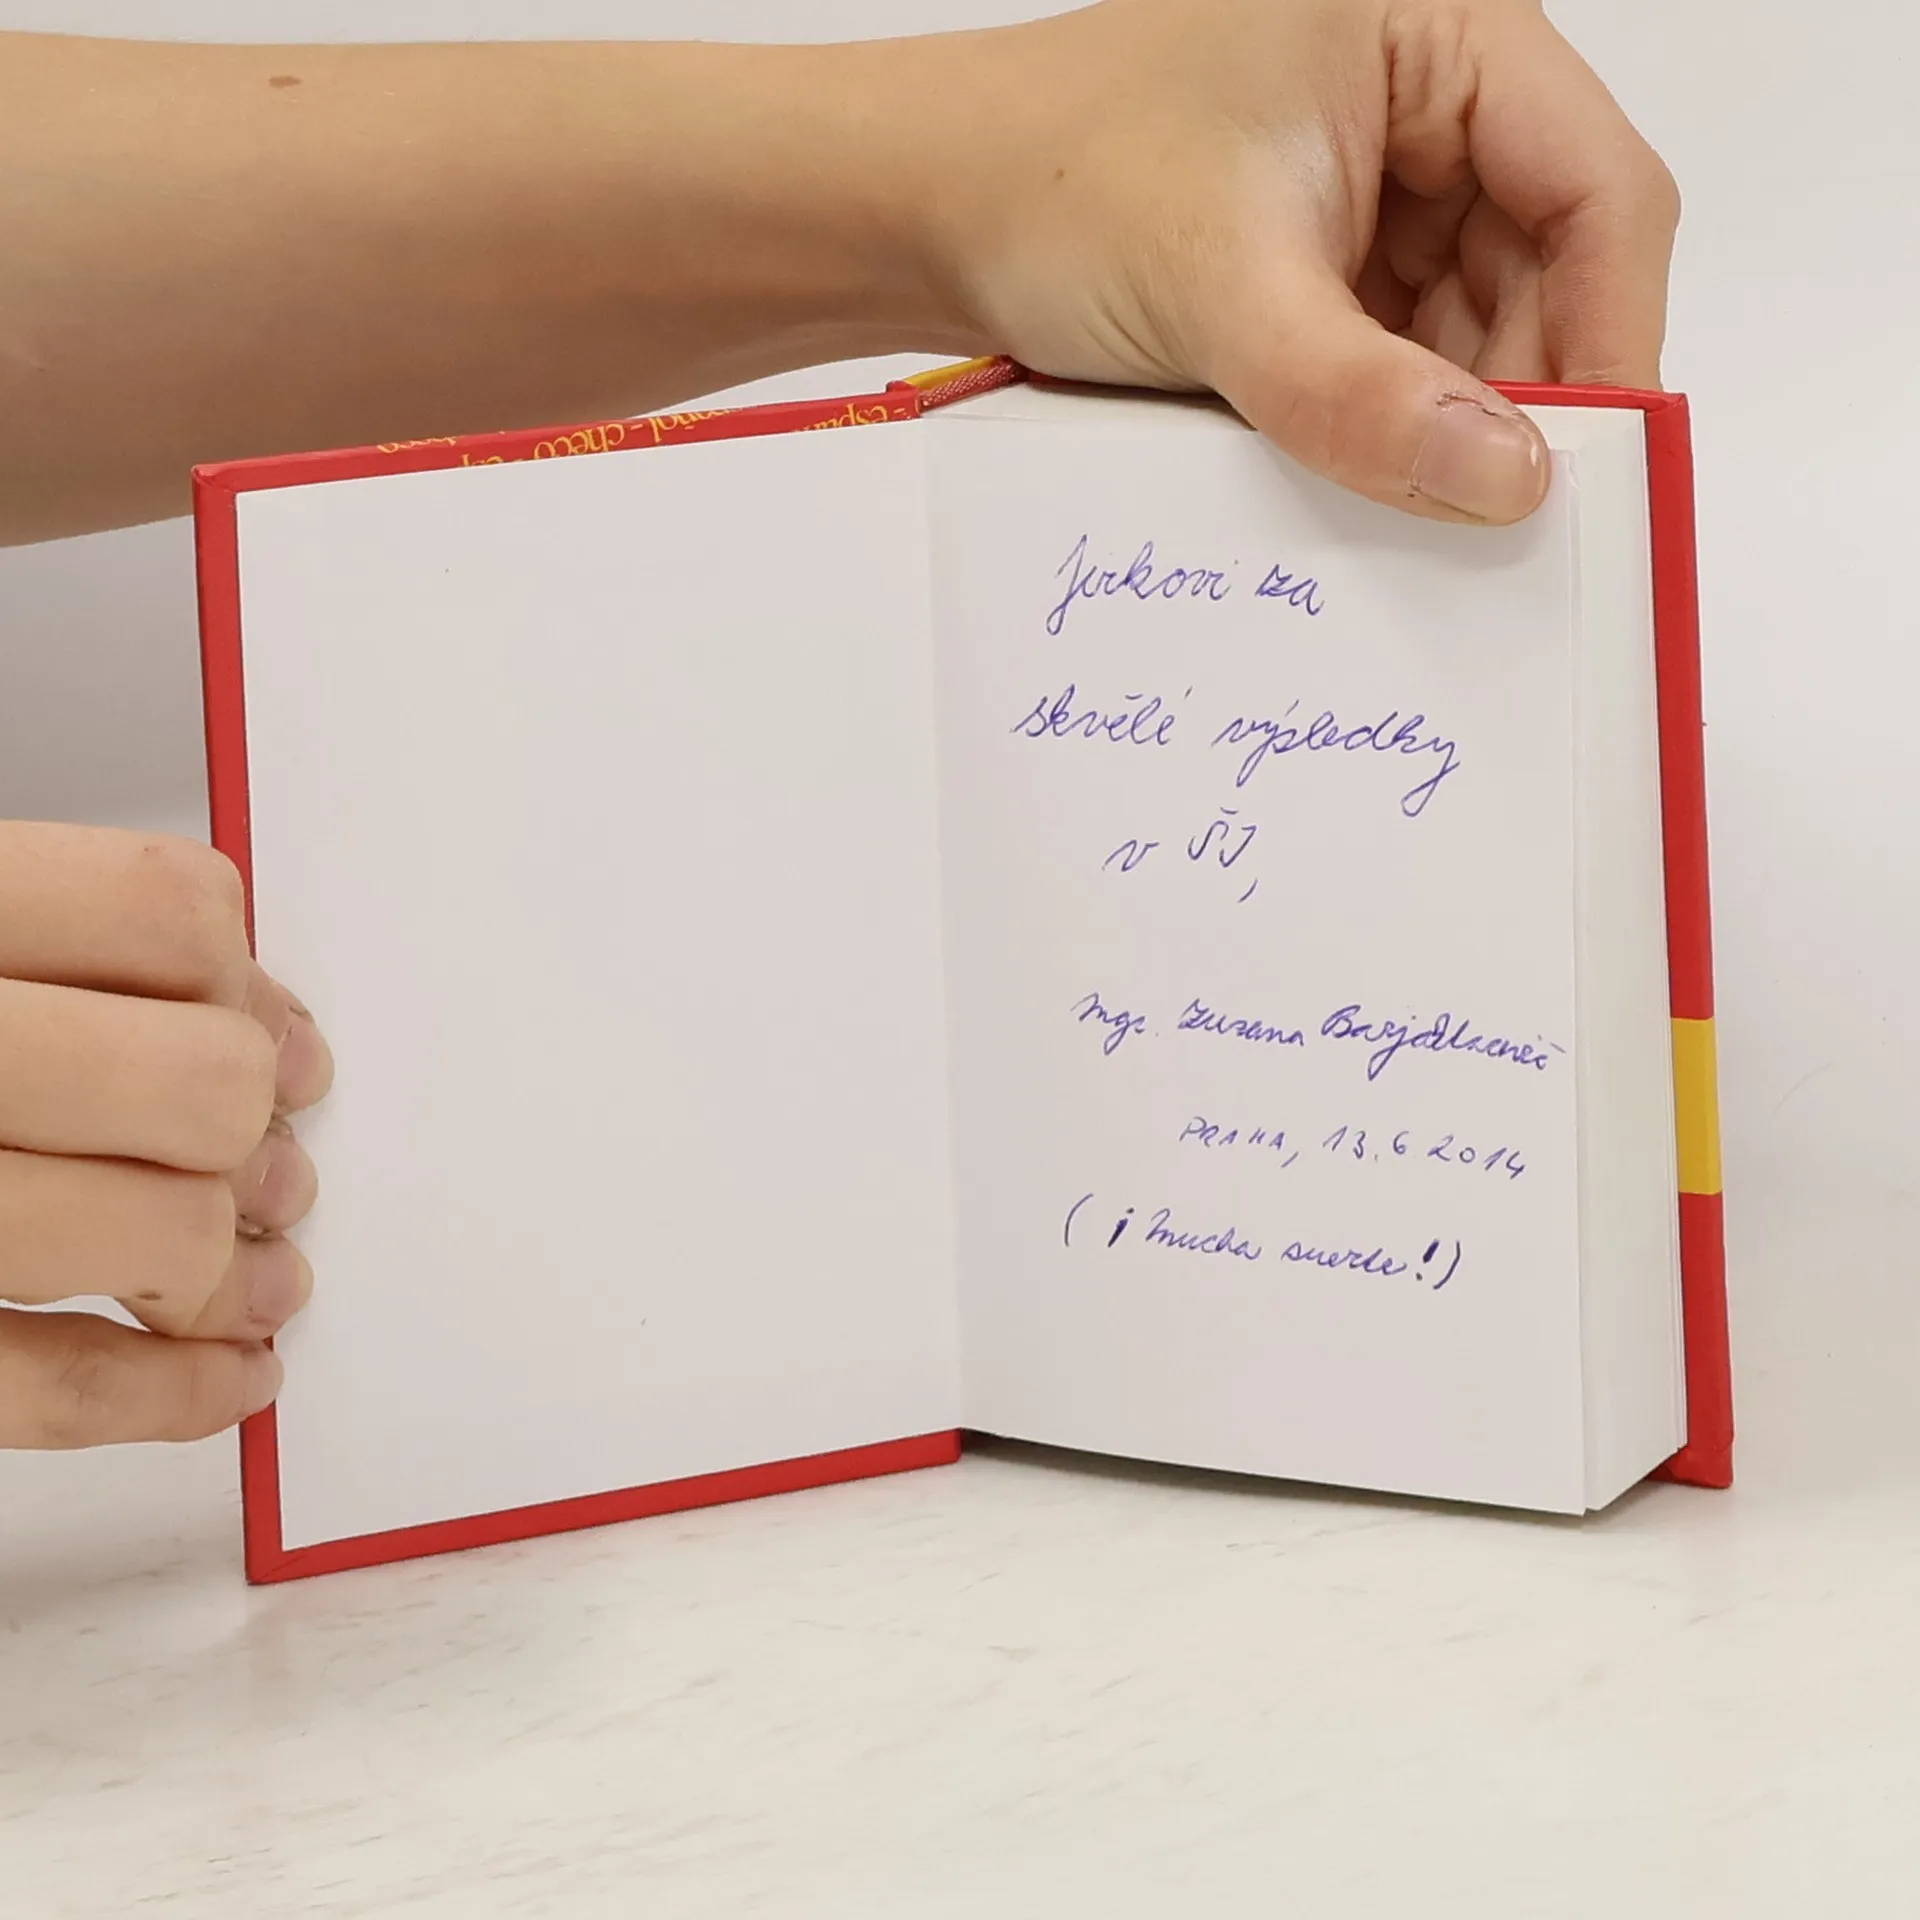 español - checo - esp
Jirkovi za
skvělé výsledky
v ŠJ,
Mgr. Zuzana
PRAHA, 13.6.2014
(¡Mucha suerte!)